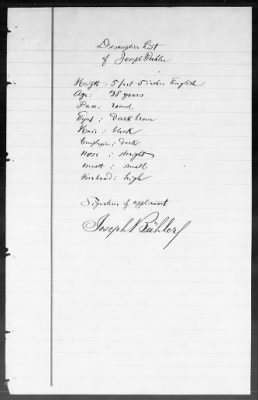 Description List
of Joseph Bühler
Heigth : 5 feet 5 inches English
Age : 38 years
Face : round
Eyes : dark brown
Hair : black
Complexion : dark
Nose : straight
Mouth : small
Forehead : high
Signature of applicant
Joseph Bühler